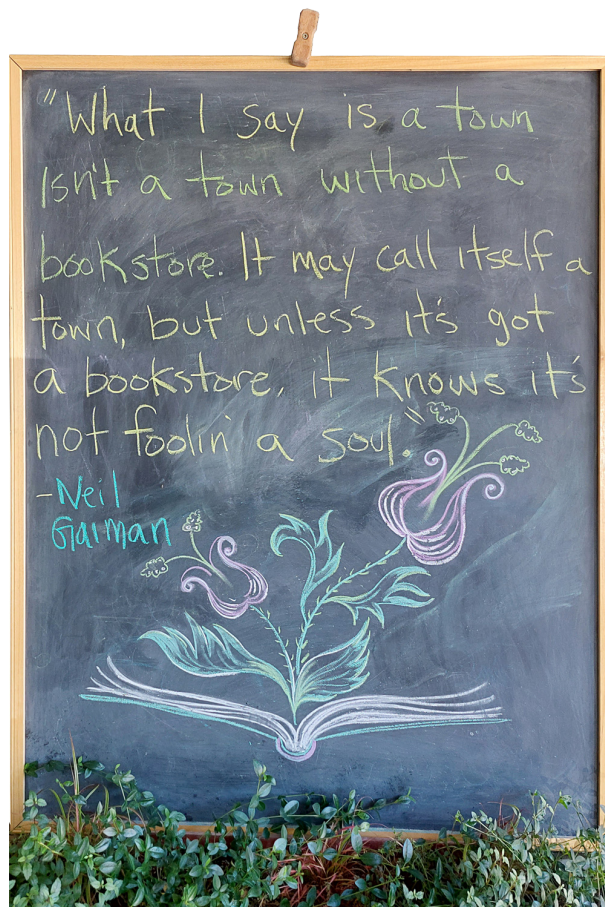 "What I say is a town
isn't a town without a
bookstore. It may call itself a
town, but unless it's got
a bookstore, it knows it's
not foolin' a soul."
-Neil
Gaiman